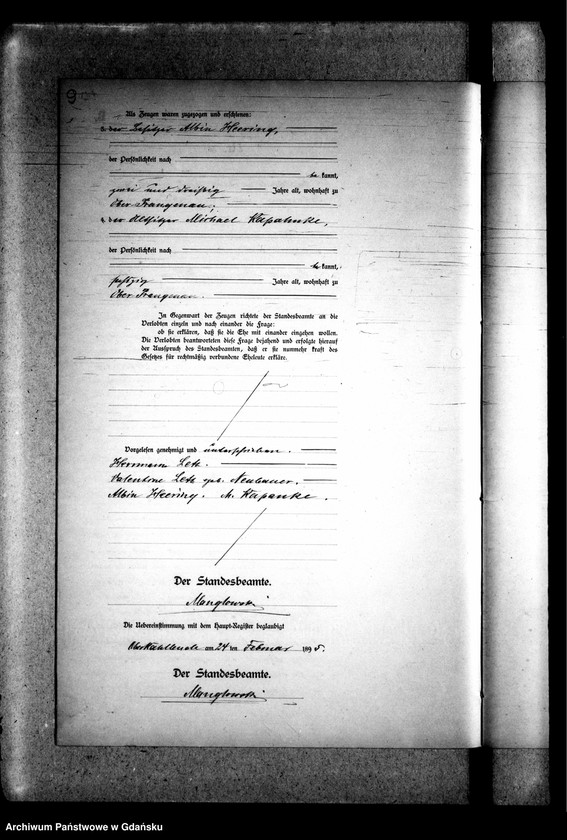 9
Als Zeugen waren zugezogen und erschienen:
der Besitzer Albin Heering,
der Persönlichkeit nach
bekannt,
zwei und dreißig Jahre alt, wohnhaft zu
Ober Prangenau;
4. der Altsitzer Michael
der Persönlichkeit nach
bekannt,
fünfzig Jahre alt, wohnhaft zu
Ober Prangenau.
In Gegenwart der Zeugen richtete der Standesbeamte an die
Verlobten einzeln und nach einander die Frage:
ob sie erklären, daß sie die Ehe mit einander eingehen wollen.
Die Verlobten beantworteten diese Frage bejahend und erfolgte hierauf
der Ausspruch des Standesbeamten, daß er sie nunmehr kraft des
Gesetzes für rechtmäßig verbundene Eheleute erkläre.
Vorgelesen genehmigt und unterschrieben.
Herrmann
Valentine geb. Neubauer.
Albin Heering. M. Kapanke.
Der Standesbeamte.
Manglowski
Die Uebereinstimmung mit dem Haupt-Register beglaubigt
am 24 ten Februar 1895.
Der Standesbeamte.
Manglowski
Archiwum Państwowe w Gdańsku